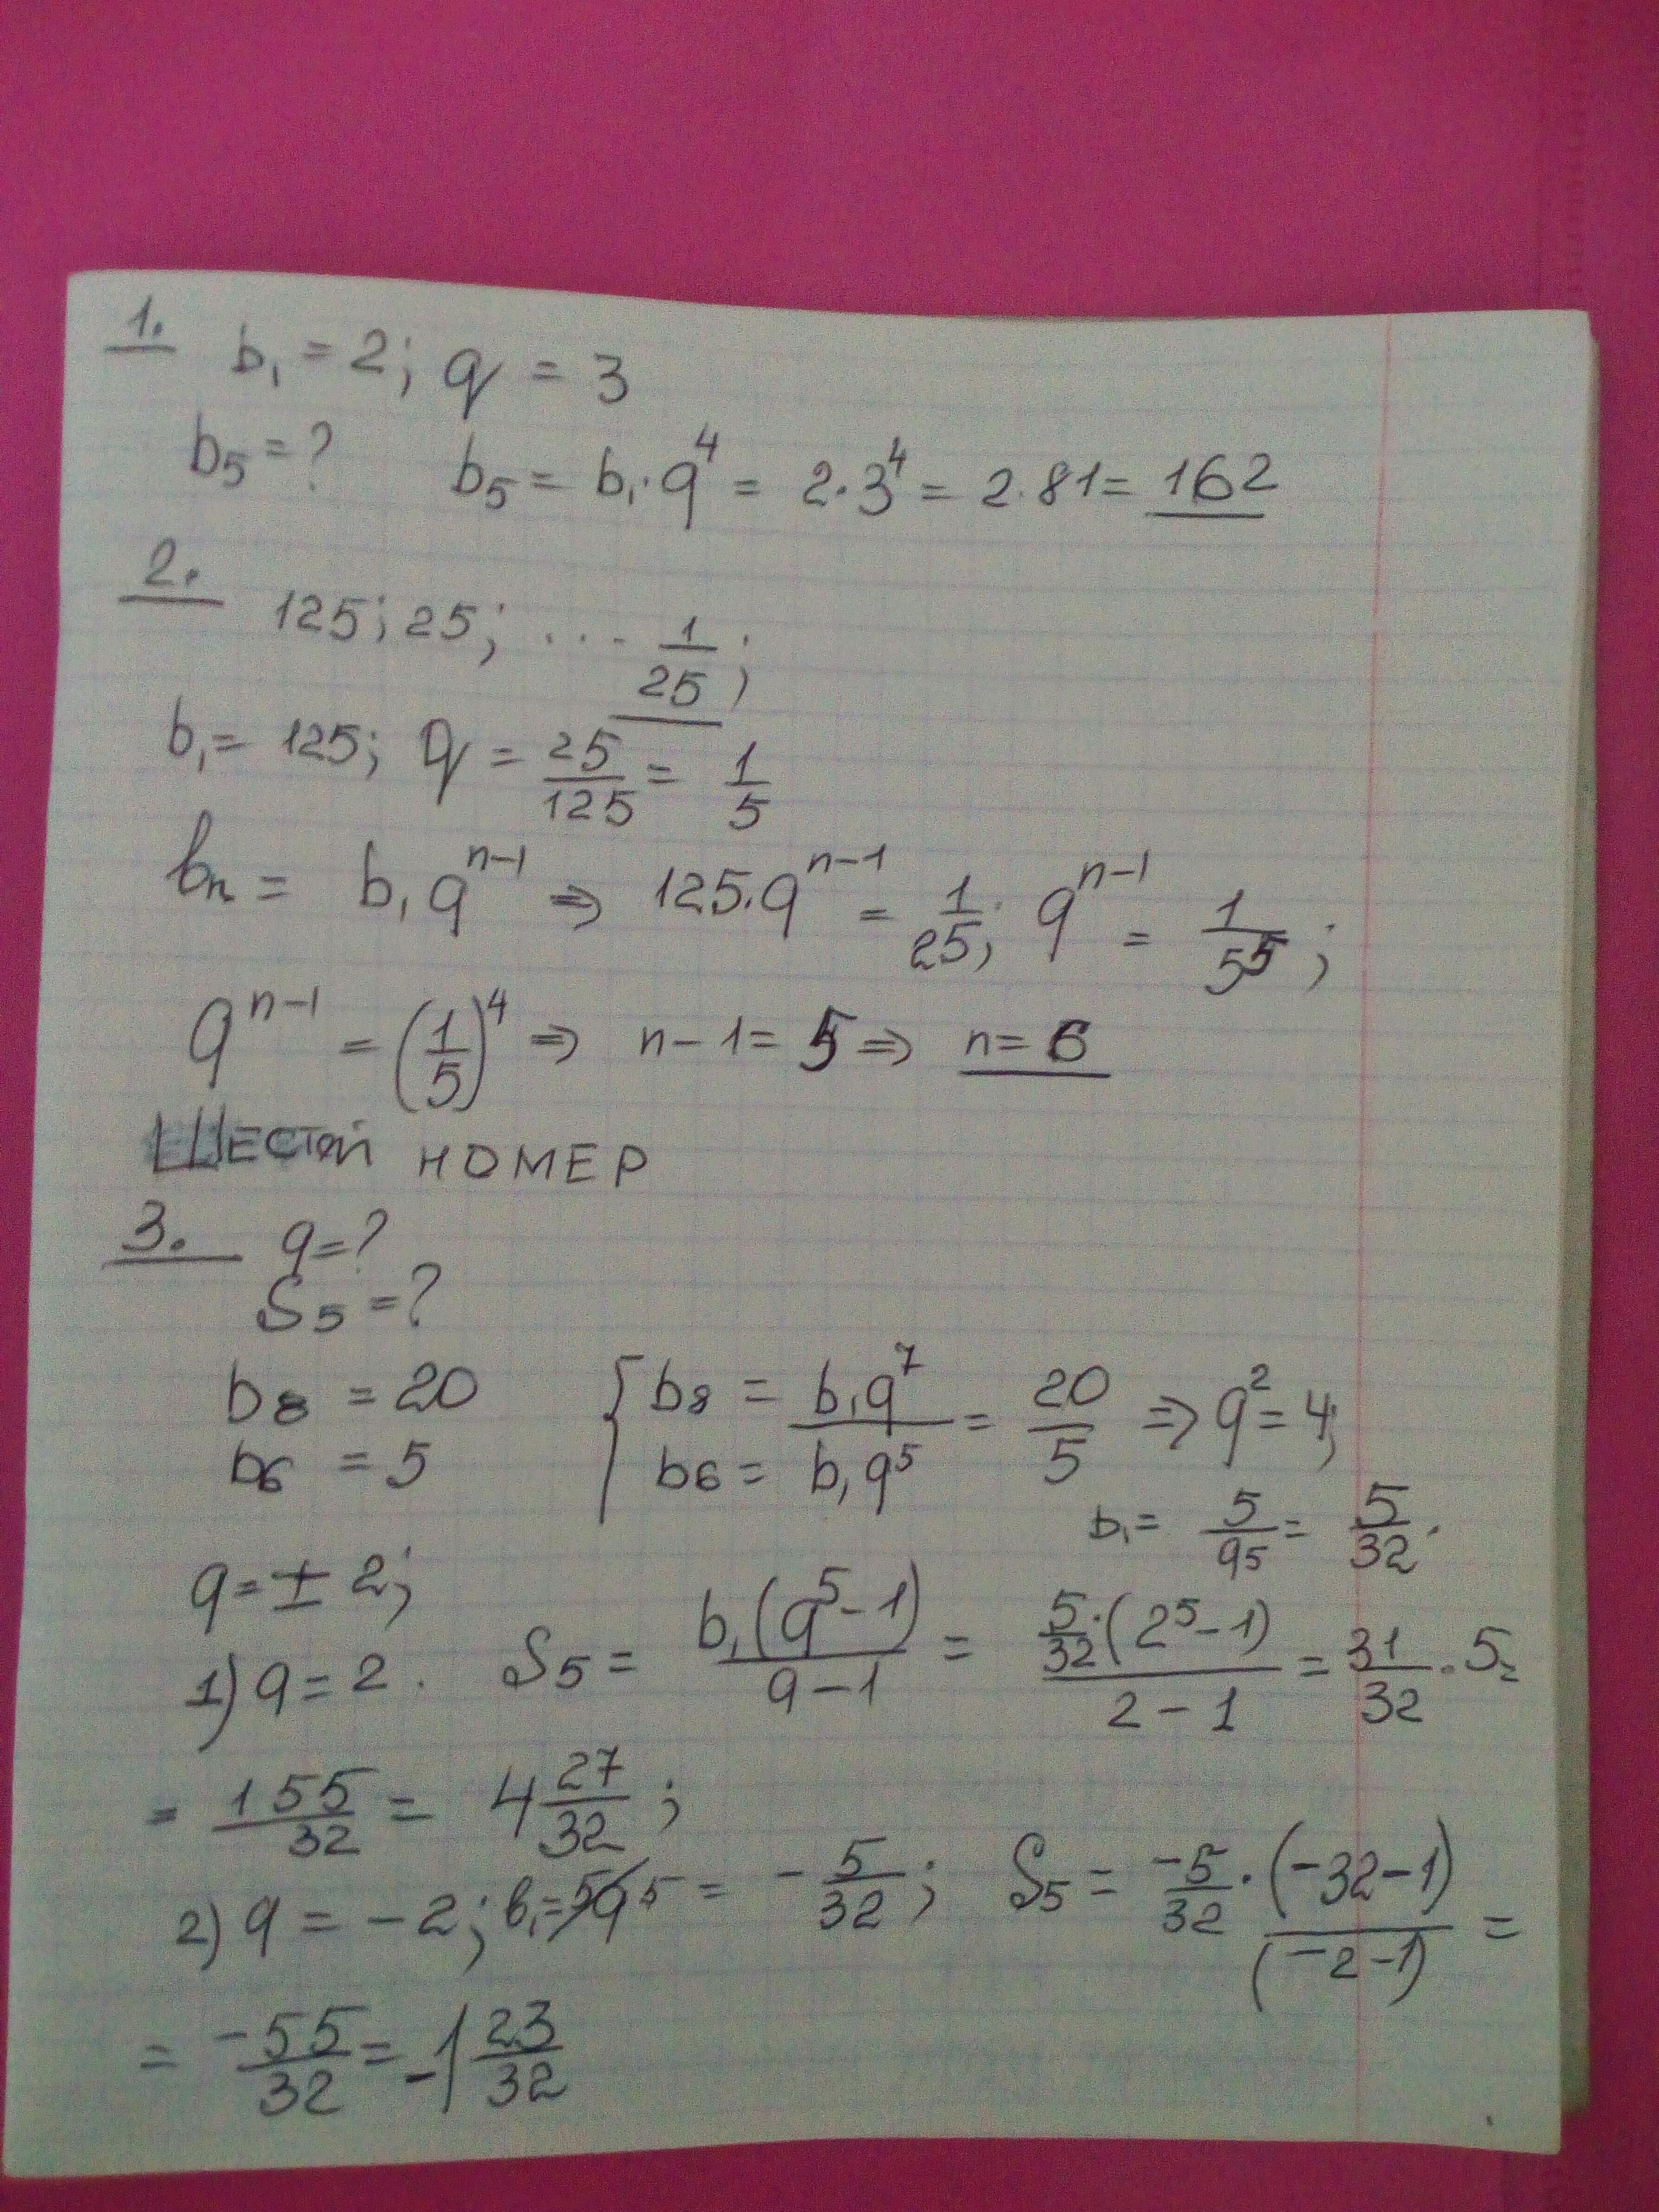 1. b₁ = 2; q = 3
b₅ = ? b₅ = b₁·q⁴ = 2·3⁴ = 2·81 = 162
2. 125; 25; .... 1/25;
b₁ = 125; q = 25/125 = 1/5
bₙ = b₁qⁿ⁻¹ ⇒ 125·qⁿ⁻¹ = 1/25; qⁿ⁻¹ = 1/5⁵;
qⁿ⁻¹ = (1/5)⁴ ⇒ n-1 = 5 ⇒ n = 6
ШЕСТОЙ НОМЕР
3. q = ?
S₅ = ?
b₈ = 20 { b₈ = b₁q⁷ / b₆ = b₁q⁵ = 20/5 ⇒ q² = 4;
b₆ = 5
b₁ = 5/q5 = 5/32.
q = ± 2;
1) q = 2. S₅ = b₁(q⁵-1)/(q-1) = 5/32·(2⁵-1)/(2-1) = 31/32·5 =
= 155/32 = 4 27/32;
2) q = -2; b₁ = 5/q5 = -5/32; S₅ = -5/32·(-32-1)/(-2-1) =
= -55/32 = -1 23/32